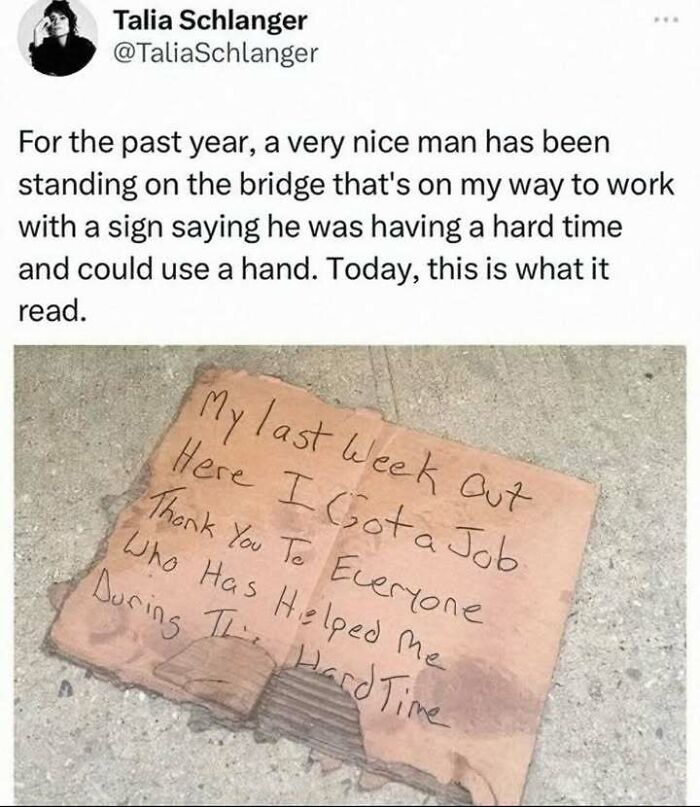 Talia Schlanger
@TaliaSchlanger
For the past year, a very nice man has been
standing on the bridge that's on my way to work
with a sign saying he was having a hard time
and could use a hand. Today, this is what it
read.
My last Week Out
Here I Got a Job
Thank You To Everyone
Who Has Helped Me
During This Hard Time